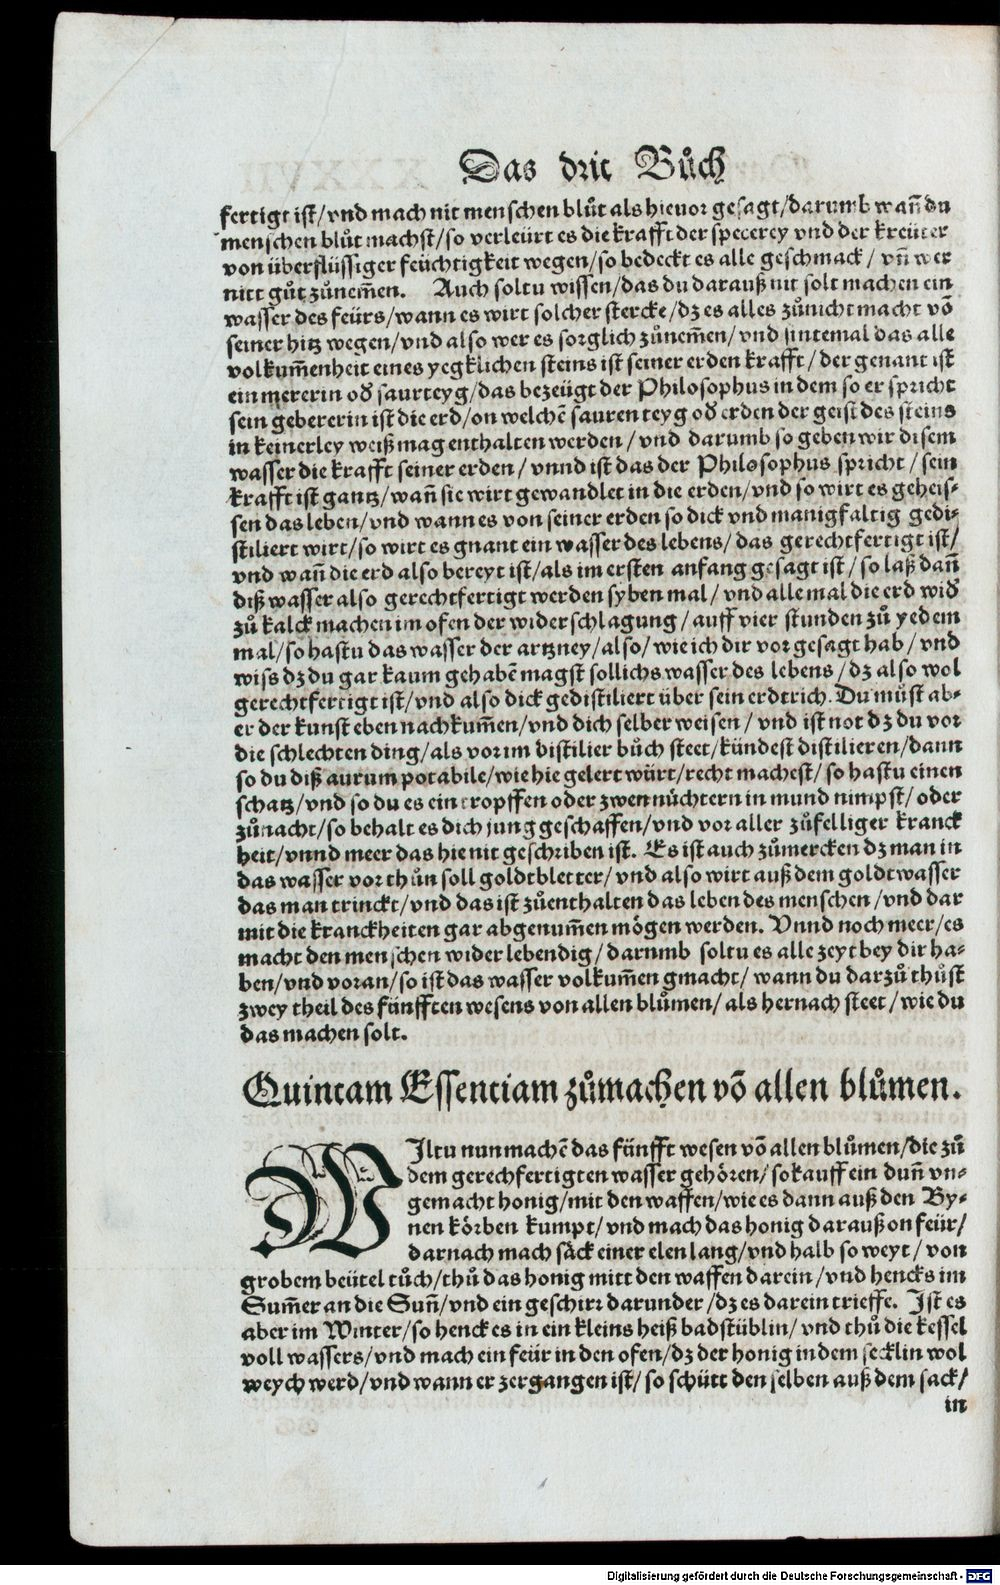 Das drit Bůch
fertigt ist/vnd mach nit menschen blůt als hieuor gesagt/darumb wañ du
menschen blůt machst/so verleürt es die krafft der specerey vnd der kreüter
von überflüssiger feüchtigkeit wegen/so bedeckt es alle geschmack/ vñ wer
nitt gůt zůnem̃en. Auch soltu wissen/das du darauß nit solt machen ein
wasser des feürs/wann es wirt solcher stercke/dz es alles zůnicht macht võ
seiner hitz wegen/vnd also wer es sorglich zůnem̃en/vnd sintemal das alle
volkum̃enheit eines yegklichen steins ist seiner erden krafft/der genant ist
ein mererin oď saurteyg/das bezeügt der Philosophus in dem so er spricht
sein gebererin ist die erd/on welchẽ sauren teyg oď erden der geist des steins
in keinerley weiß mag enthalten werden/vnd darumb so geben wir disem
wasser die krafft seiner erden/vnnd ist das der Philosophus spricht/sein
krafft ist gantz/wañ sie wirt gewandlet in die erden/vnd so wirt es geheis-
sen das leben/vnd wann es von seiner erden so dick vnd manigfaltig gedi-
stiliert wirt/so wirt es gnant ein wasser des lebens/das gerechtfertigt ist/
vnd wañ die erd also bereyt ist/als im ersten anfang gesagt ist/so laß dañ
diß wasser also gerechtfertigt werden syben mal/vnd alle mal die erd wiď
zů kalck machen im ofen der widerschlagung/auff vier stunden zů yedem
mal/so hastu das wasser der artzney/also/wie ich dir vor gesagt hab/vnd
wiss dz du gar kaum gehabẽ magst sollichs wasser des lebens/dz also wol
gerechtfertigt ist/vnd also dick gedistiliert über sein erdtrich. Du můst ab-
er der kunst eben nachkum̃en/vnd dich selber weisen/vnd ist not dz du vor
die schlechten ding/als vor im distilier bůch steet/kündest distilieren/dann
so du diß aurum potabile/wie hie gelert würt/recht machest/so hastu einen
schatz/vnd so du es ein tropffen oder zwen nüchtern in mund nimpst/oder
zůnacht/so behalt es dich jung geschaffen/vnd vor aller zůfelliger kranck
heit/vnnd meer das hie nit geschriben ist. Es ist auch zůmercken dz man in
das wasser vor thůn soll goldtbletter/vnd also wirt auß dem goldtwasser
das man trinckt/vnd das ist zůenthalten das leben des menschen/vnd dar
mit die kranckheiten gar abgenum̃en mögen werden. Vnnd noch meer/es
macht den menschen wider lebendig/darumb soltu es alle zeyt bey dir ha-
ben/vnd voran/so ist das wasser volkum̃en gmacht/wann du darzů thůst
zwey theil des fünfften wesens von allen blůmen/als hernach steet/wie du
das machen solt.
Quintam Essentiam zůmachen võ allen blůmen.
WIltu nun machẽ das fünfft wesen võ allen blůmen/die zů
dem gerechfertigten wasser gehören/so kauff ein duñ vn-
gemacht honig/mit den waffen/wie es dann auß den By-
nen körben kumpt/vnd mach das honig darauß on feür/
darnach mach säck einer elen lang/vnd halb so weyt/von
grobem beütel tůch/thů das honig mitt den waffen darein/vnd hencks im
Sum̃er an die Suñ/vnd ein geschirr darunder/dz es darein trieffe. Ist es
aber im Winter/so henck es in ein kleins heiß badstüblin/vnd thů die kessel
voll wassers/vnd mach ein feür in den ofen/dz der honig in dem secklin wol
weych werd/vnd wann er zergangen ist/so schütt den selben auß dem sack/
in
Digitalisierung gefördert durch die Deutsche Forschungsgemeinschaft - DFG